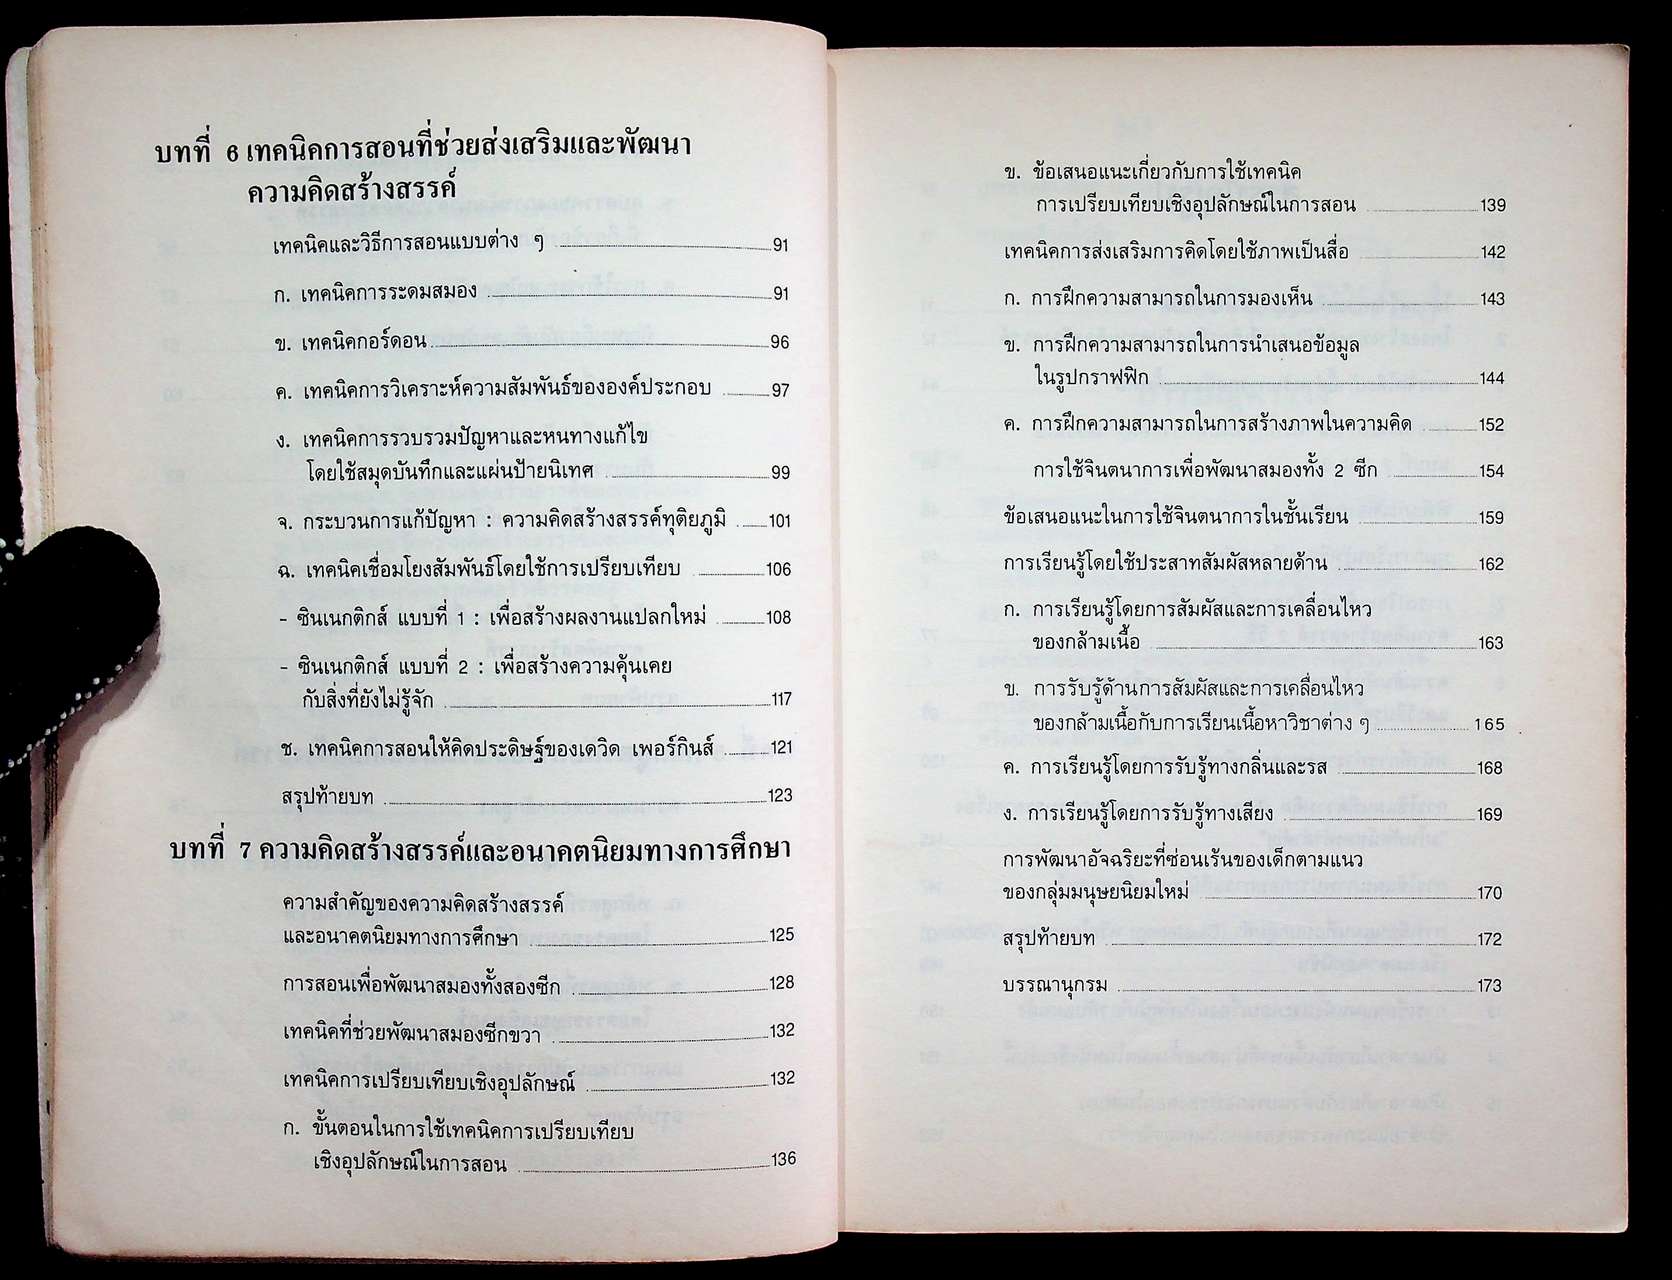 บทที่ 6 เทคนิคการสอนที่ช่วยส่งเสริมและพัฒนา
ความคิดสร้างสรรค์
เทคนิคและวิธีการสอนแบบต่าง ๆ 91
ก. เทคนิคการระดมสมอง 91
ข. เทคนิคกอร์ดอน 96
ค. เทคนิคการวิเคราะห์ความสัมพันธ์ขององค์ประกอบ 97
ง. เทคนิคการรวบรวมปัญหาและหนทางแก้ไข
โดยใช้สมุดบันทึกและแผ่นป้ายนิเทศ 99
จ. กระบวนการแก้ปัญหา : ความคิดสร้างสรรค์ทุติยภูมิ 101
ฉ. เทคนิคเชื่อมโยงสัมพันธ์โดยใช้การเปรียบเทียบ 106
- ซินเนกติกส์ แบบที่ 1 : เพื่อสร้างผลงานแปลกใหม่ 108
- ซินเนกติกส์ แบบที่ 2 : เพื่อสร้างความคุ้นเคย
กับสิ่งที่ยังไม่รู้จัก 117
ช. เทคนิคการสอนให้คิดประดิษฐ์ของเดวิด เพอร์กินส์ 121
สรุปท้ายบท 123
บทที่ 7 ความคิดสร้างสรรค์และอนาคตนิยมทางการศึกษา
ความสำคัญของความคิดสร้างสรรค์
และอนาคตนิยมทางการศึกษา 125
การสอนเพื่อพัฒนาสมองทั้งสองซีก 128
เทคนิคที่ช่วยพัฒนาสมองซีกขวา 132
เทคนิคการเปรียบเทียบเชิงอุปลักษณ์ 132
ก. ขั้นตอนในการใช้เทคนิคการเปรียบเทียบ
เชิงอุปลักษณ์ในการสอน 136
ข. ข้อเสนอแนะเกี่ยวกับการใช้เทคนิค
การเปรียบเทียบเชิงอุปลักษณ์ในการสอน 139
เทคนิคการส่งเสริมการคิดโดยใช้ภาพเป็นสื่อ 142
ก. การฝึกความสามารถในการมองเห็น 143
ข. การฝึกความสามารถในการนำเสนอข้อมูล
ในรูปกราฟฟิก 144
ค. การฝึกความสามารถในการสร้างภาพในความคิด 152
การใช้จินตนาการเพื่อพัฒนาสมองทั้ง 2 ซีก 154
ข้อเสนอแนะในการใช้จินตนาการในชั้นเรียน 159
การเรียนรู้โดยใช้ประสาทสัมผัสหลายด้าน 162
ก. การเรียนรู้โดยการสัมผัสและการเคลื่อนไหว
ของกล้ามเนื้อ 163
ข. การรับรู้ด้านการสัมผัสและการเคลื่อนไหว
ของกล้ามเนื้อกับการเรียนเนื้อหาวิชาต่าง ๆ 165
ค. การเรียนรู้โดยการรับรู้ทางกลิ่นและรส 168
ง. การเรียนรู้โดยการรับรู้ทางเสียง 169
การพัฒนาอัจฉริยะที่ซ่อนเร้นของเด็กตามแนว
ของกลุ่มมนุษยนิยมใหม่ 170
สรุปท้ายบท 172
บรรณานุกรม 173